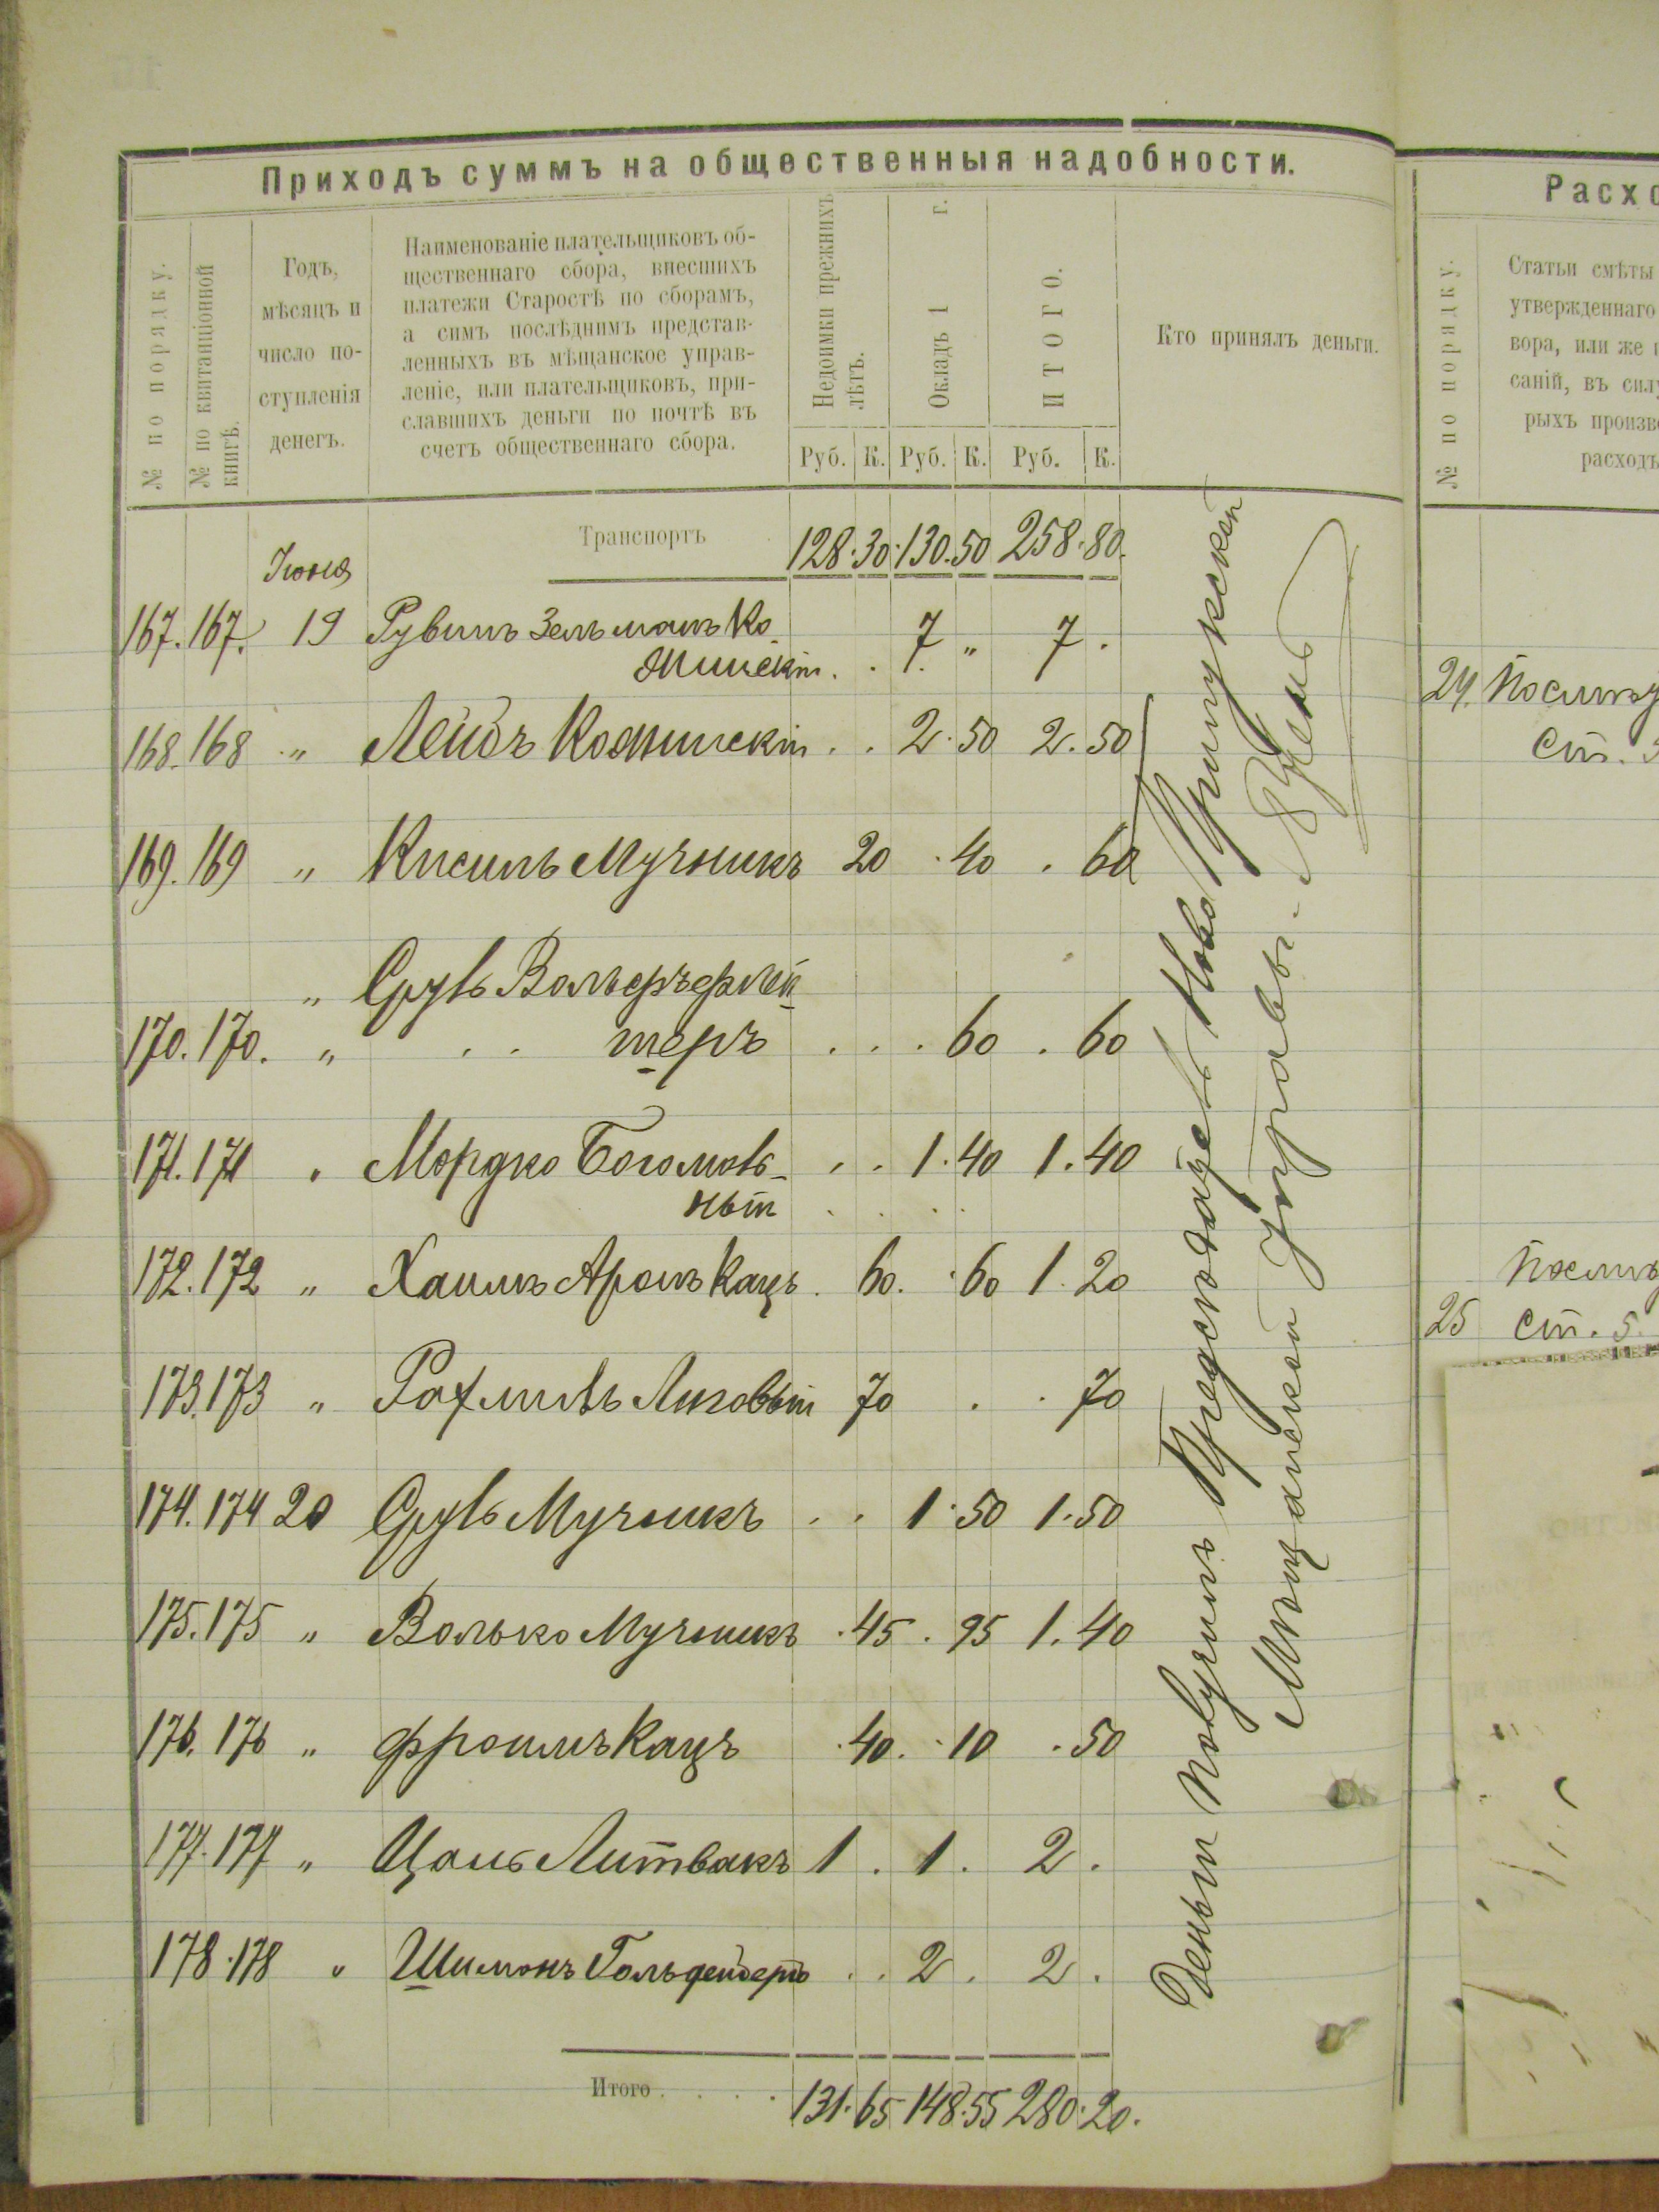 Приходъ суммъ на общественныя надобности.
№ по порядку.
№ по квитанціонной
книгѣ.
Годъ,
мѣсяцъ и
число по-
ступленія
денегъ.
Наименованіе плательщиковъ об-
щественнаго сбора, внесшихъ
платежи Старостѣ по сборамъ,
а симъ послѣднимъ представ-
ленныхъ въ мѣщанское управ-
леніе, или плательщиковъ, при-
славшихъ деньги по почтѣ въ
счетъ общественнаго сбора.
Недоимки прежнихъ
лѣтъ.
Окладъ 1 г.
ИТОГО.
Кто принялъ деньги.
Руб. К. Руб. К. Руб. К.
Транспортъ 128.30.130.50 258.80.
Іюня
167. 167. 19 Рувинъ Зельманъ Ко
жинскій . . 7. „ 7 .
168. 168 „ Лейбъ Кожинскій . . 2.50 2.50
169. 169 „ Кисиль Мучникъ 20 .40 . 60
„ Сруль Вольфъ
170. 170. „ . . теръ . . . 60 . 60
171. 171 „ Мордко Богомоль-
ный
. . 1.40 1.40
172. 172 „ Хаимъ Аронъ Кацъ . 60. .60 1.20
173. 173 „ Рахмиль Лизовый 70 . . 70
174. 174 20 Сруль Мучникъ . . 1.50 1.50
175. 175 „ Волько Мучникъ .45 . 95 1.40
176. 176 „ Фроимъ Кацъ .40. .10 .50
177. 177 „ Литвакъ 1 . 1. 2 .
178. 178 „ Шимонъ . . 2 . 2 .
Итого . . . . 131.65 148.55 280.20.
Деньги получилъ Предсѣдатель Ново Прилукской
Мѣщанской Управы
Расхо
№ по порядку.
Статьи смѣты
утвержденнаго
вора, или же п
саній, въ силу
рыхъ произве
расходъ
24.
Ст.
25 Ст. 5.